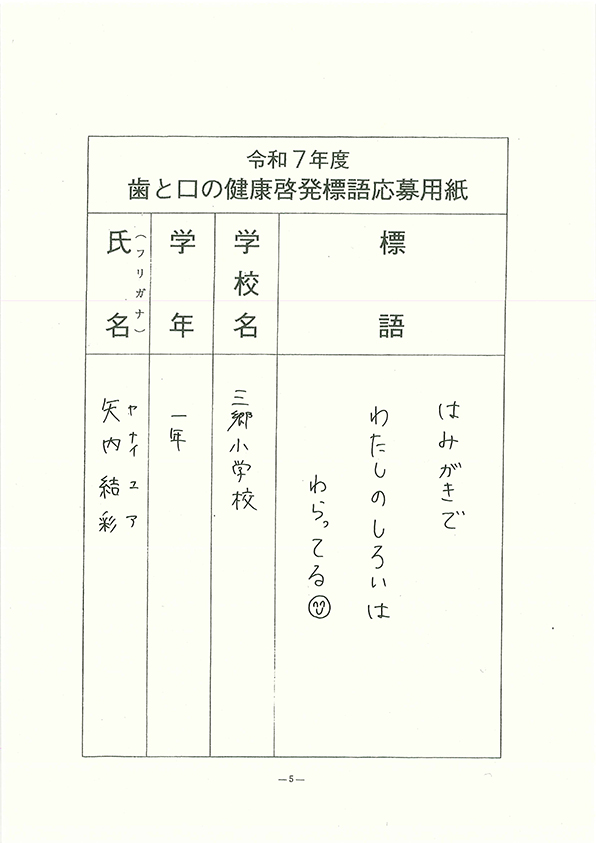 令和7年度
歯と口の健康啓発標語応募用紙
標語
はみがきで
わたしのしろいは
わらってる
学校名
三郷小学校
学年
一年
氏名
(フリガナ)
ヤナイ ユア
矢内 結彩
—5—